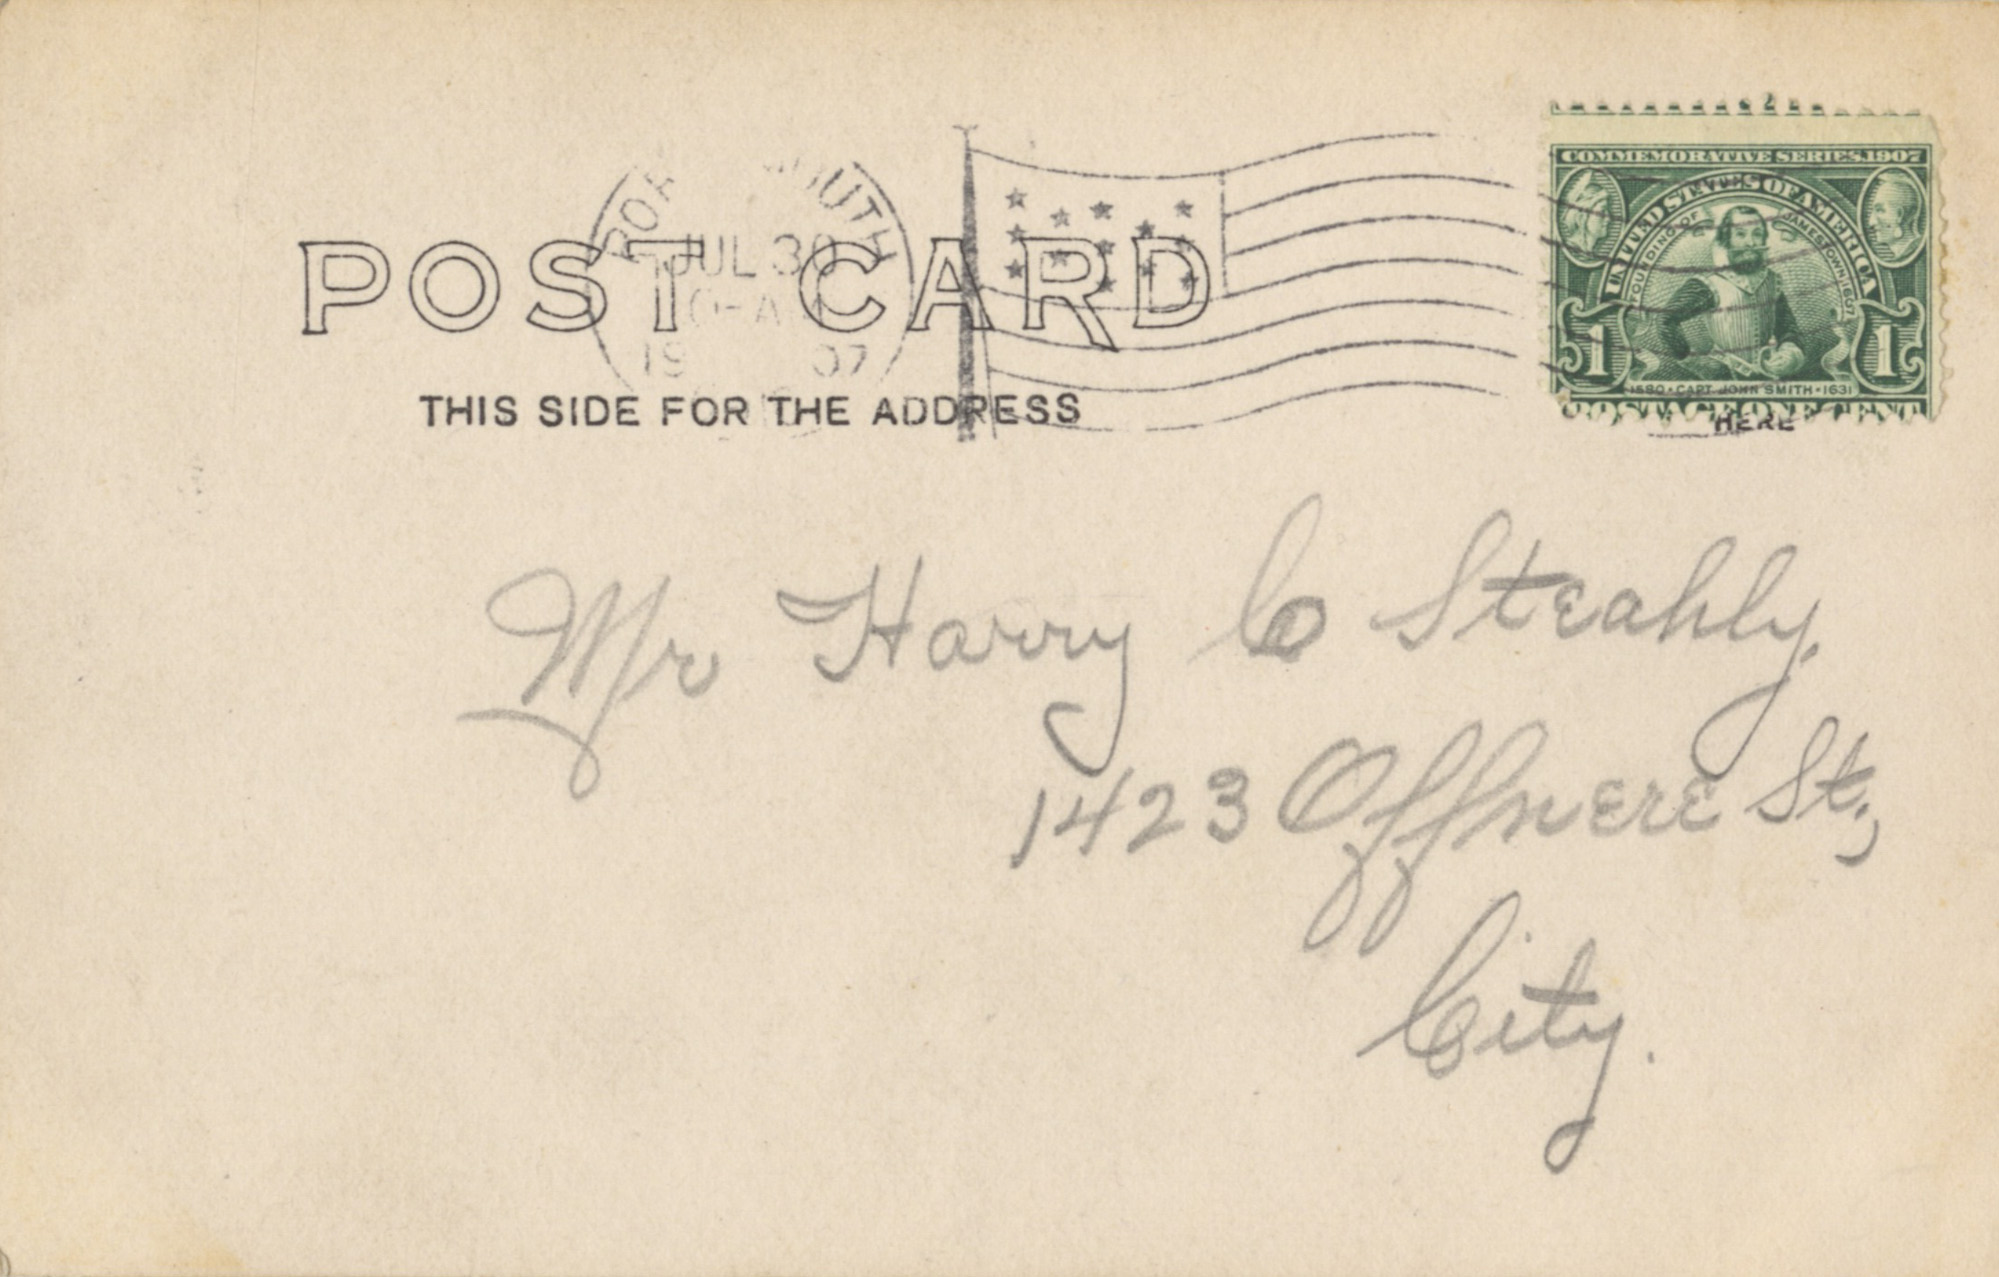 PORTSMOUTH
JUL 30
10-AM
1907
POST CARD
THIS SIDE FOR THE ADDRESS
COMMEMORATIVE SERIES, 1907
UNITED STATES OF AMERICA
FOUNDING OF JAMESTOWN 1607
1 1
1580 · CAPT JOHN SMITH · 1631
POSTAGE ONE CENT
HERE
Mr Harry C Steahly,
1423 Offnere St.,
City.